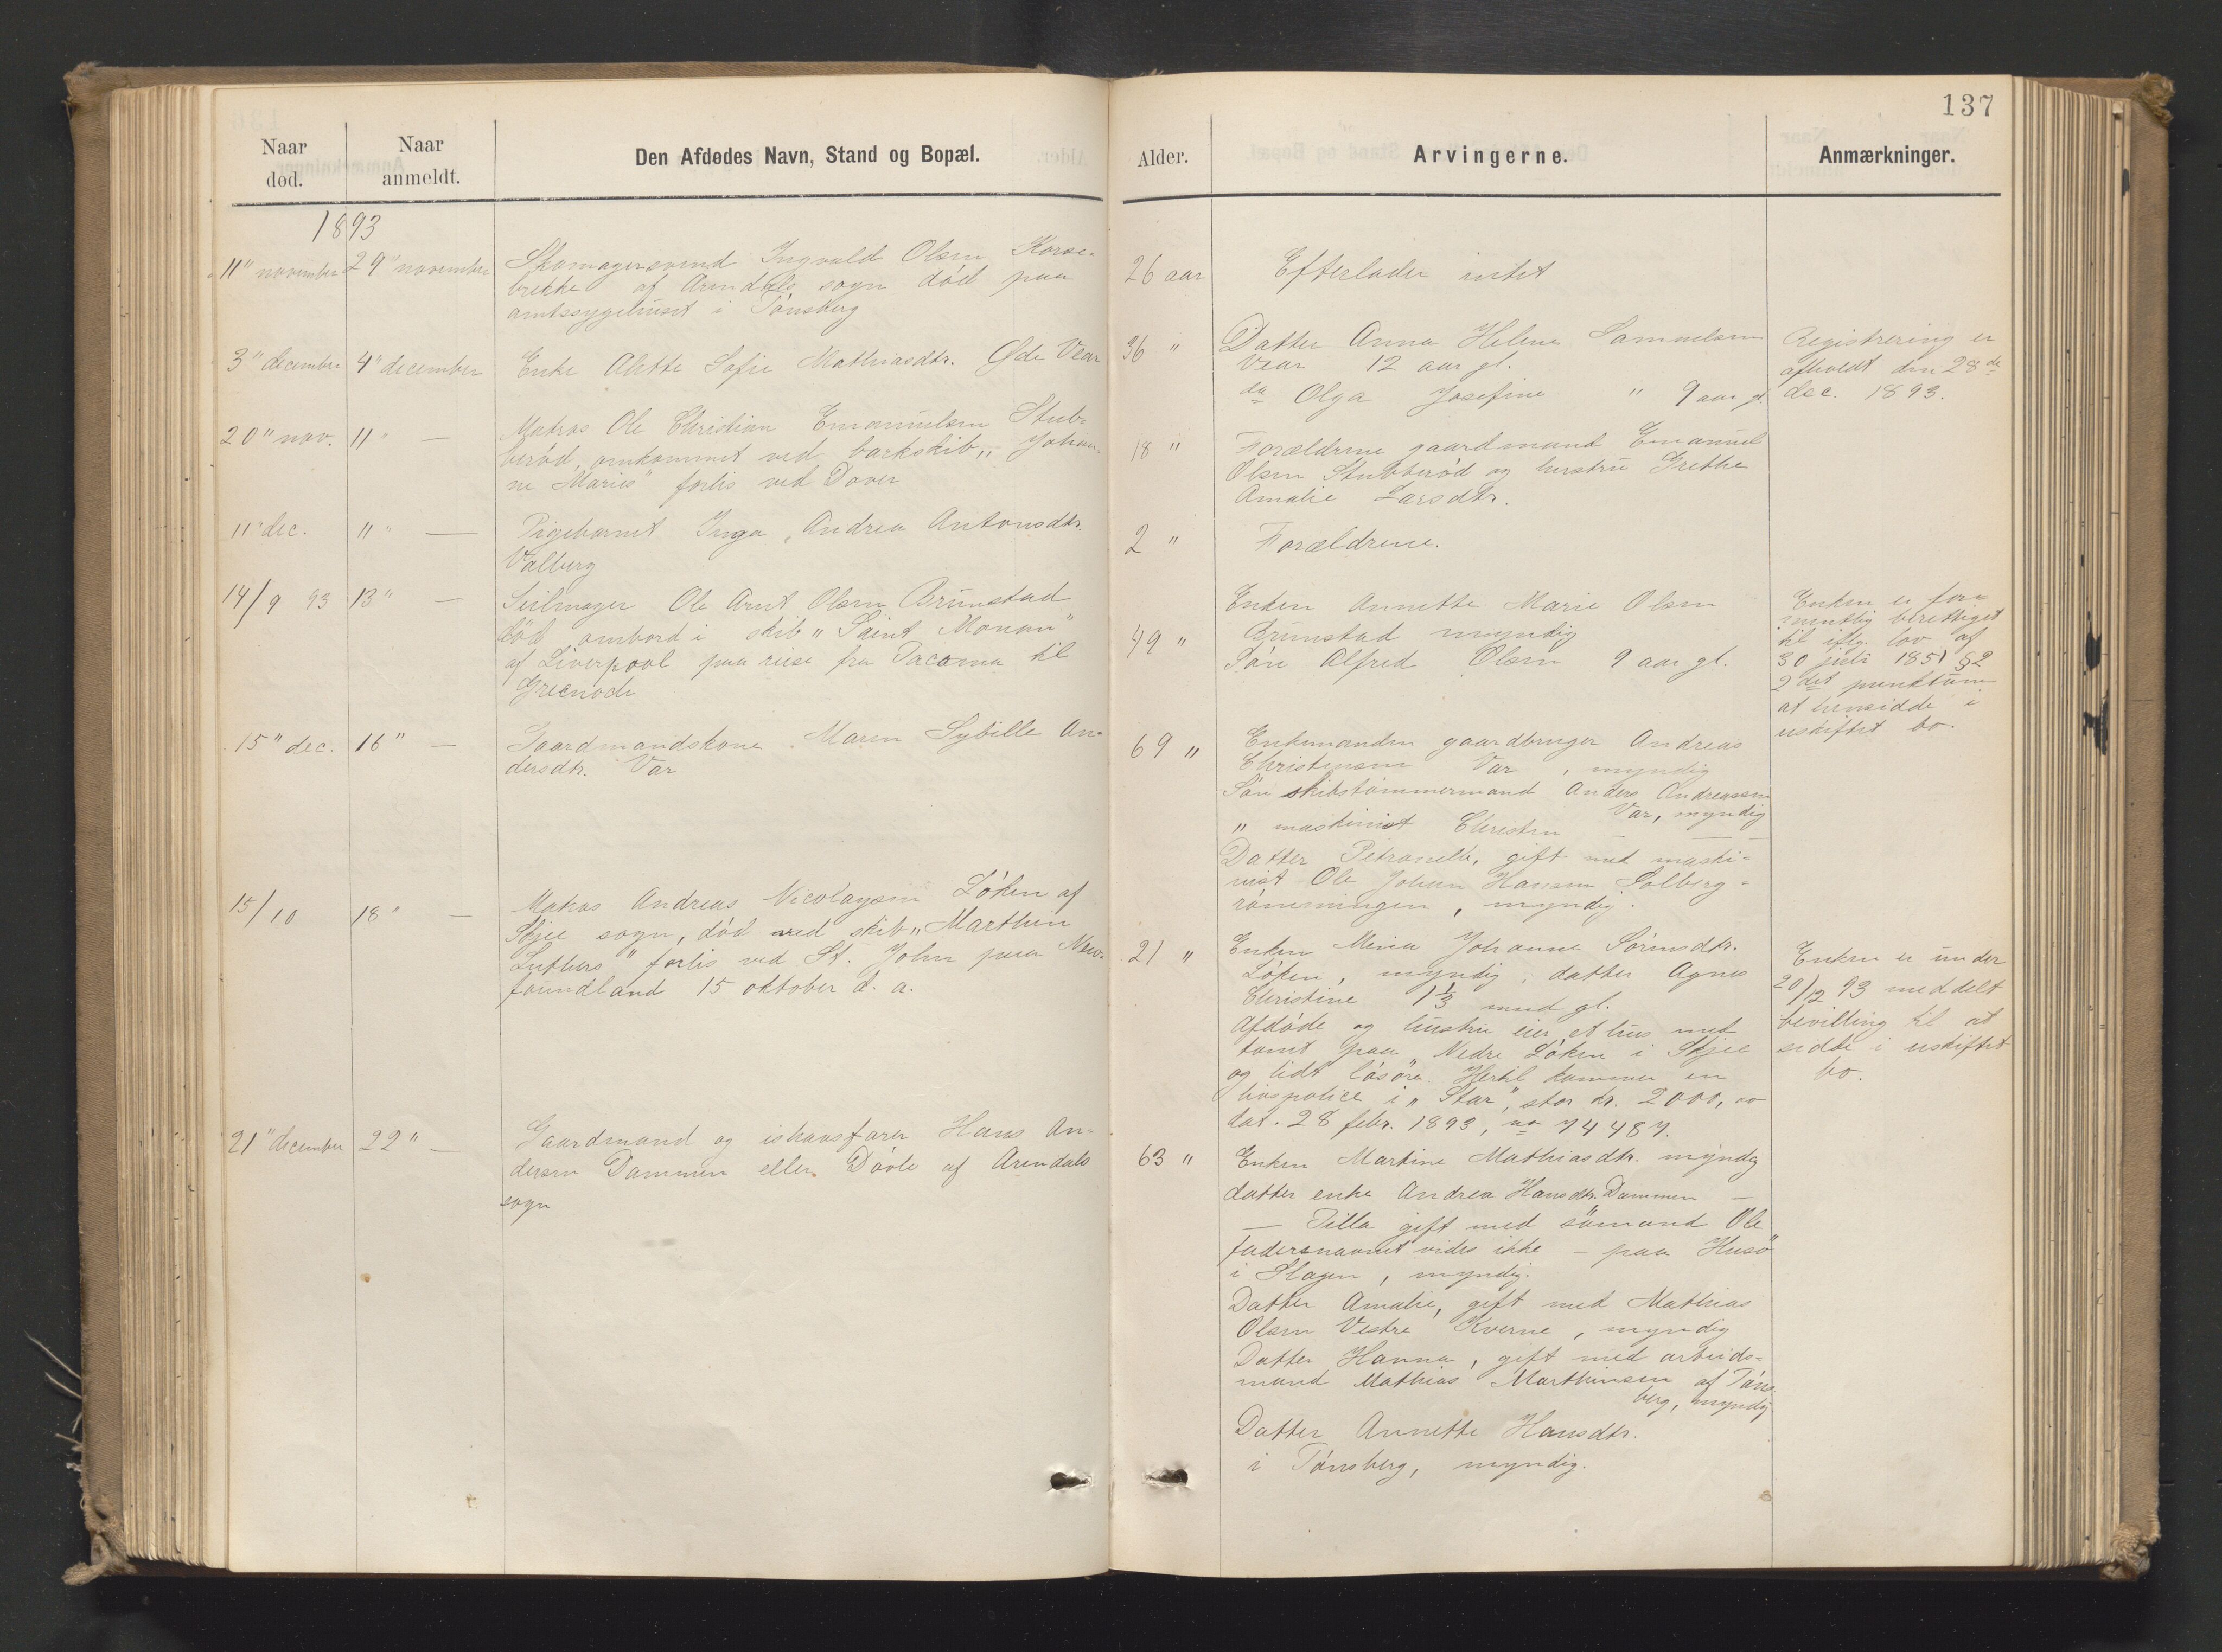 137
Naar
død.
Naar
anmeldt.
Den Afdødes Navn, Stand og Bopæl.
Alder.
Arvingerne.
Anmærkninger.
1893
11" november 29" november
Skomagersvend Ingvald Olsen Korse-
brekke af Arendals sogn død paa
amtssygehuset i Tönsberg
26 aar
Efterlader intet
3" december 4" december
Enke Alette Sofie Mathiasdtr. Øde Vear
36 "
Datter Anna Helene Samuelsen
Vear 12 aar gl.
do Olga Josefine " 9 aar gl.
Registrering er
afholdt den 28de
dec. 1893.
20" nov. 11" —
Matros Ole Christian Emanuelsen Stub-
beröd, omkommet ved barkskib „Johan-
ne Maries" forlis ved Dover
18 "
Forældrene gaardmand Emanuel
Olsen Stubberöd og hustru Grethe
Amalie Larsdtr.
11" dec. 11 " —
Pigebarnet Inga Andrea Antonsdtr.
Valberg
2 "
Forældrene.
14/9 93 13" —
Seilmager Ole Arnt Olsen Brunstad
död ombord i skib „Saint Monan"
af Liverpool paa reise fra Tacoma til
49 "
Enken Annette Marie Olsen
Brunstad myndig
Sön Alfred Olsen 9 aar gl.
Enken er for-
mentlig berettiget
til iflg. lov af
30 juli 1851 §2
2det punktum
at hensidde i
uskiftet bo.
15" dec. 16" —
Gaardmandskone Maren Sybille An-
dersdtr. Var
69 "
Enkemanden gaardbruger Andreas
Christensen Var, myndig
Sön skibstömmermand Anders Andreassen
Var, myndig
" maskinist Christen — —
Datter Petronelle, gift med maski-
nist Ole Johan Hansen Solberg-
rönningen, myndig.
15/10 18" —
Matros Andreas Nicolaysen Löken af
Skjee sogn, död ved skib „Marthin
Luthers" forlis ved St. John paa New-
foundland 15 oktober d. a.
21 "
Enken Mina Johanne Sörensdtr.
Löken, myndig, datter Agnes
Christine 1 1/3 mnd gl.
Afdöde og hustru eier et hus med
tomt paa Nedre Löken i Skjee
og lidt lösöre. Hertil kommer en
livspolice i „Star", stor kr. 2000,00
dat. 28 febr. 1893, no 74487.
Enken er under
20/12 93 meddelt
bevilling til at
sidde i uskiftet
bo.
21" december 22" —
Gaardmand og ishavsfarer Hans An-
dersen Dammen eller Dövle af Arendals
sogn
63 "
Enken Martine Mathiasdtr. myndig
datter enke Andrea Hansdtr. Dammen —
— Tilla gift med sömand Ole
fadersnavnet vides ikke – paa Husö
i Slagen, myndig.
Datter Amalie, gift med Mathias
Olsen Vestre Kverne, myndig
Datter Hanna, gift med arbeids-
mand Mathias Marthinsen af Töns-
berg, myndig
Datter Annette Hansdtr.
i Tönsberg, myndig.